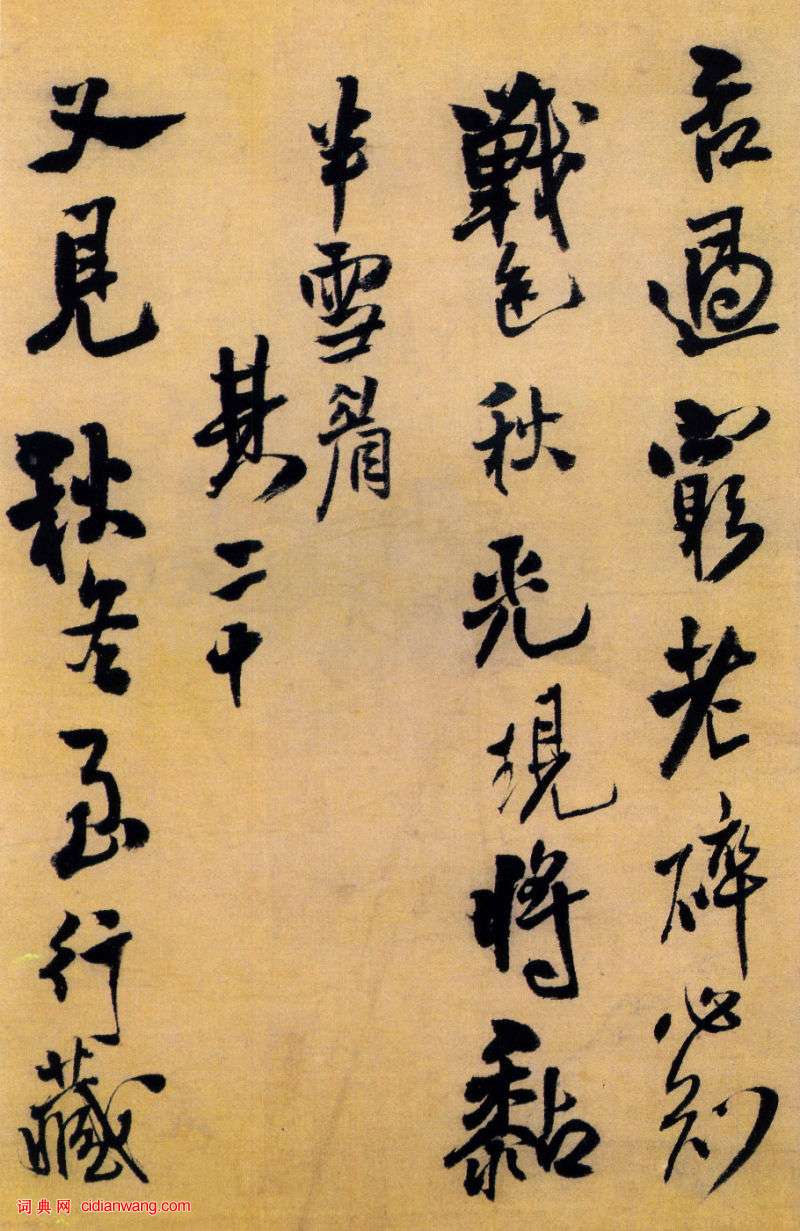 過窮老碎心
戰色秋光現將黏
半雪眉
其二十
又見秋冬至行藏
词典网 cidianwang.com